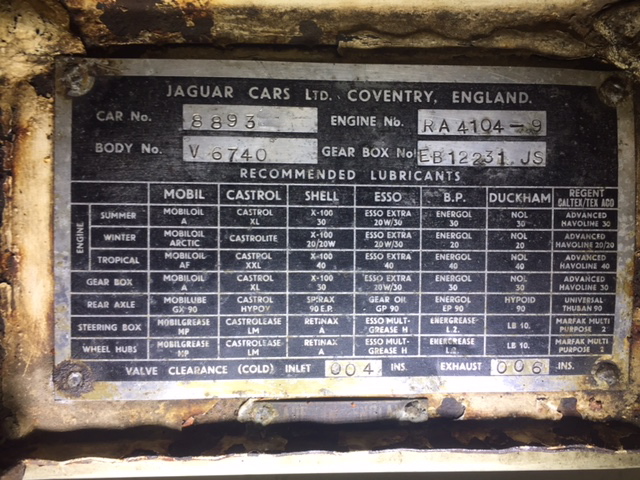 JAGUAR CARS LTD. COVENTRY, ENGLAND.
CAR No. 8893 ENGINE No. RA4104-9
BODY No. V 6740 GEAR BOX No EB12231 JS
RECOMMENDED LUBRICANTS
MOBIL CASTROL SHELL ESSO B.P. DUCKHAM REGENT CALTEX/TEXACO
ENGINE
SUMMER MOBILOIL A CASTROL XL X-100 30 ESSO EXTRA 20W/30 ENERGOL 30 NOL 30 ADVANCED HAVOLINE 30
WINTER MOBILOIL ARCTIC CASTROLITE X-100 20/20W ESSO EXTRA 20W/30 ENERGOL 20 NOL 20 ADVANCED HAVOLINE 20/20
TROPICAL MOBILOIL AF CASTROL XXL X-100 40 ESSO EXTRA 20W/30 ENERGOL 40 NOL 40 ADVANCED HAVOLINE 40
GEAR BOX MOBILOIL A CASTROL XL X-100 30 ESSO EXTRA 20W/30 ENERGOL 30 NOL 30 ADVANCED HAVOLINE 30
REAR AXLE MOBILUBE GX 90 CASTROL HYPOY SPIRAX 90 E.P. GEAR OIL GP 90 ENERGOL EP 90 HYPOID 90 UNIVERSAL THUBAN 90
STEERING BOX MOBILGREASE MP CASTROLEASE LM RETINAX A ESSO MULT-GREASE H ENERGREASE L.2. LB 10. MARFAK MULTI PURPOSE 2
WHEEL HUBS MOBILGREASE MP CASTROLEASE LM RETINAX A ESSO MULT-GREASE H ENERGREASE L.2. LB 10. MARFAK MULTI PURPOSE 2
VALVE CLEARANCE (COLD) INLET 004 INS. EXHAUST 006 INS.